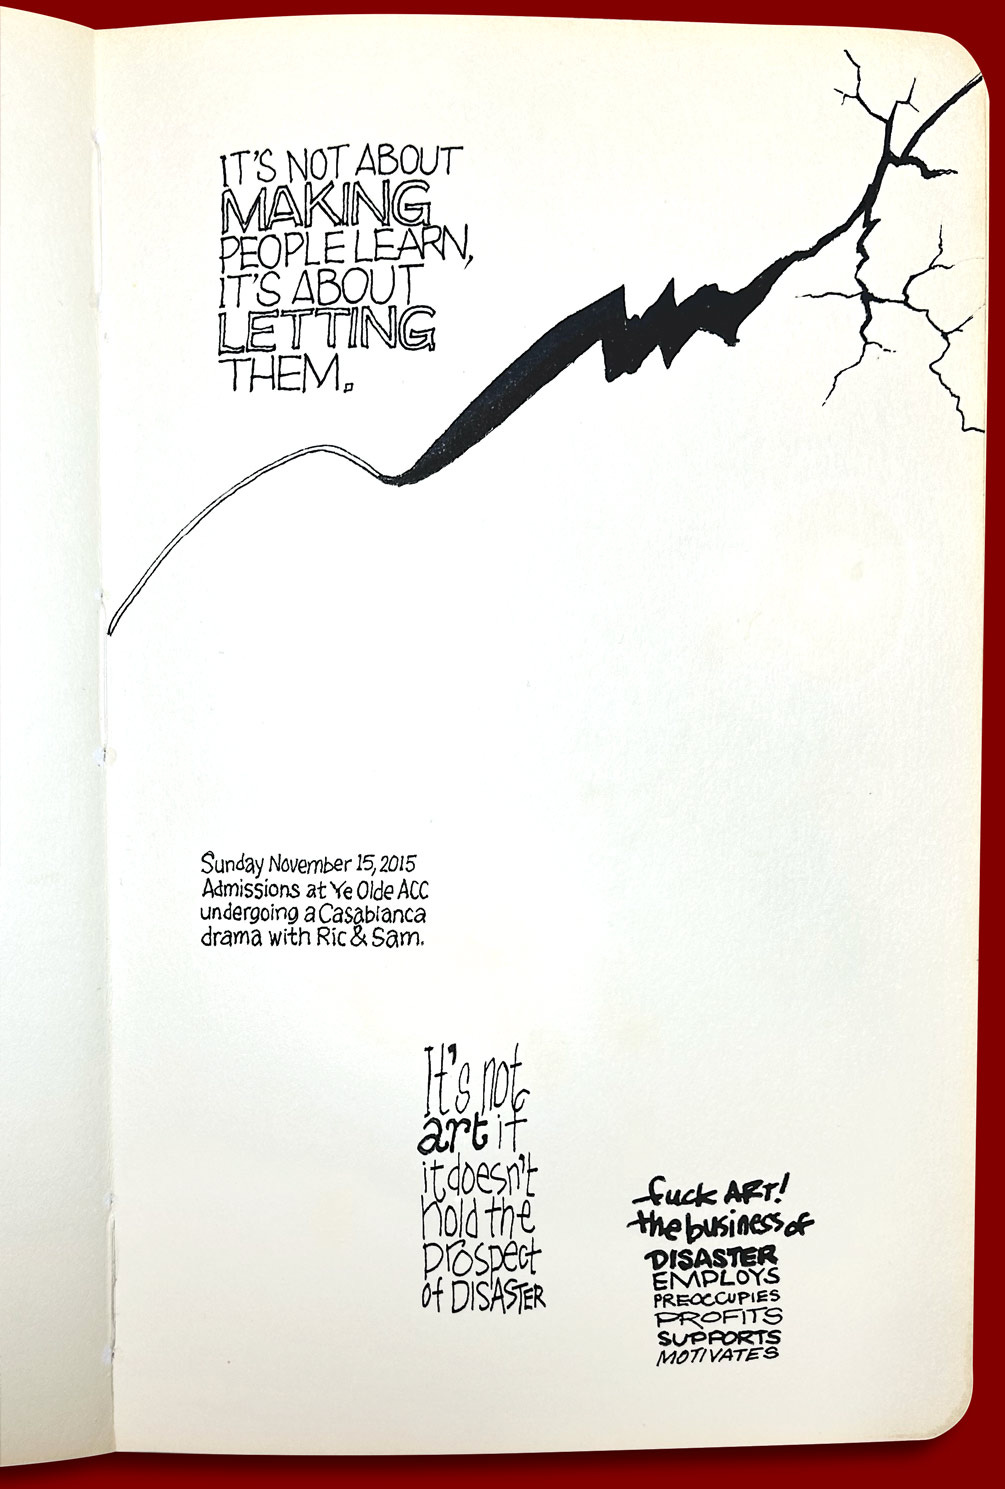 IT'S NOT ABOUT
MAKING
PEOPLE LEARN,
IT'S ABOUT
LETTING
THEM.
Sunday November 15, 2015
Admissions at Ye Olde ACC
undergoing a Casablanca
drama with Ric & Sam.
It's not
art if
it doesn't
hold the
prospect
of DISASTER
fuck ART!
the business of
DISASTER
EMPLOYS
PREOCCUPIES
PROFITS
SUPPORTS
MOTIVATES